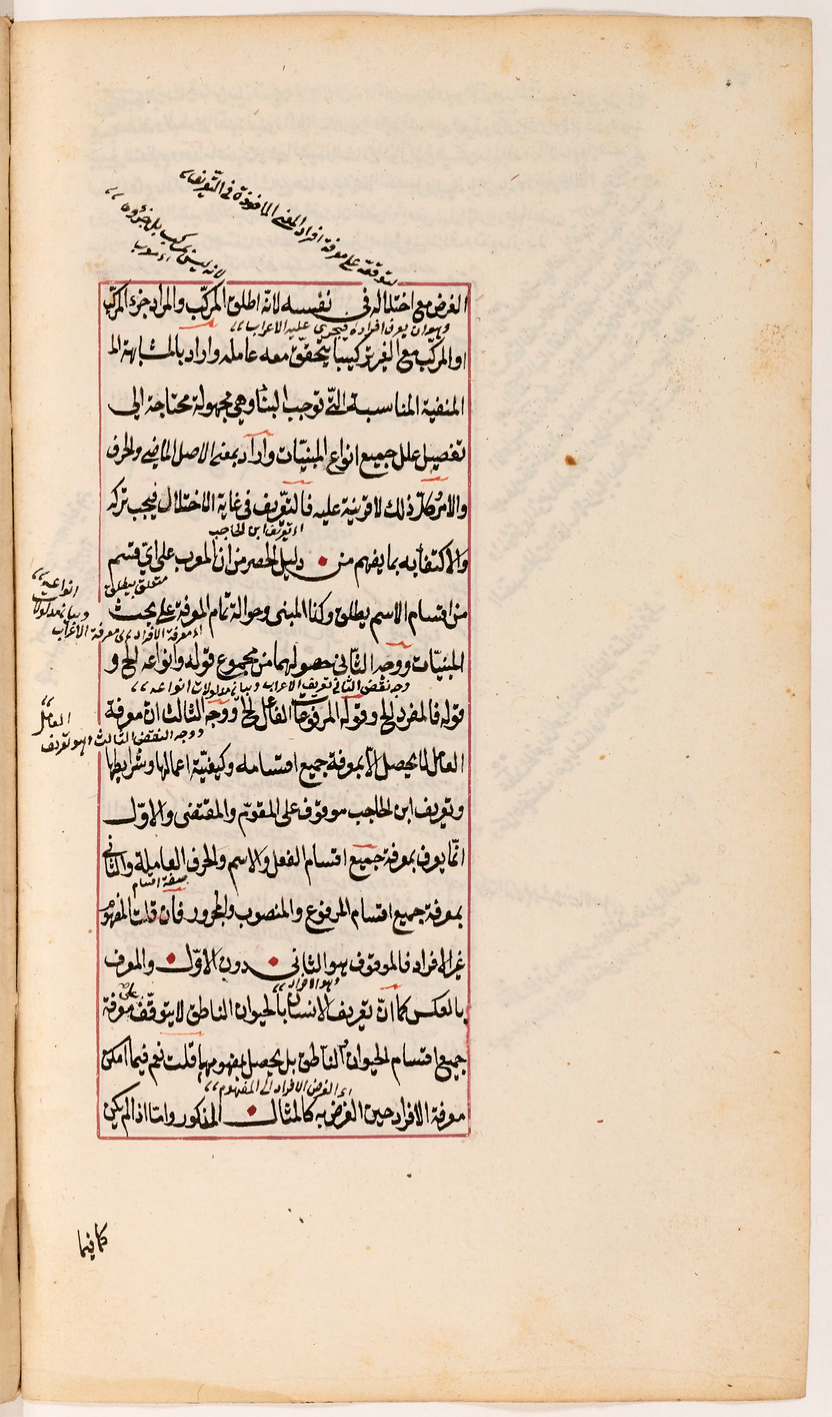 لتوقفه على معرفة افراد المعنى الماخوذة في التعريف
لانه ليس بمركب بل جزؤه
اى معرب
الغرض مع اختلاله في نفسه لانه اطلق المركب والمراد جزء المركب
وهو ان يعرف افراده فيجرى عليه الاعراب
او المركب مع الغير تركيبا يتحقق معه عامله واراد بالمشابهة الـ
المنفية المناسبة التي توجب البنا وهي مجهولة محتاجة الى
تفصيل علل جميع انواع المبنيات واراد بمعنى الاصل الماضي والحرف
والامر وكل ذلك لا قرينة عليه فالتعريف في غاية الاختلال فيجب تركه
اى تعريف ابن الحاجب
والاكتفا به بما يفهم من دليل الحصر من ان المعرب على اى قسم
متعلق بيطلق
من اقسام الاسم يطلق وكذا المبنى وحوالة تمام المعرفة على بحث
انواعه
وبيان مدلولات
اى معرفة الافراد اى معرفة الاعراب
المبنيات ووجه الثاني حصولهما من مجموع قوله وانواعه الخ و
وجه نقض الثاني تعريف الاعراب وبيان مدلولات انواعه
قوله فالمفرد الخ وقوله المرفوعات الفاعل الخ ووجه الثالث ان معرفة
العامل
ووجه النقض الثالث وهو تعريف
العامل لما يحصل الا بمعرفة جميع اقسامه وكيفية اعمالها وشرايطها
وتعريف ابن الحاجب موقوف على المقوم والمقتضى والاول
انما يعرف بمعرفة جميع اقسام الفعل والاسم والحرف العاملة والثاني
صفة اقسام
بمعرفة جميع اقسام المرفوع والمنصوب والمجرور فان قلت المفهوم
غير الافراد فالموقوف هو الثاني دون الاول والمعرف
وهو الافراد
بالعكس كما ان تعريف الانسان بالحيوان الناطق لا يتوقف على معرفة
جميع اقسام الحيوان والناطق بل يحصل بمفهومهما قلت نعم فيما امكن
اى الغرض الافراد الى المفهوم
معرفة الافراد حين الغرض به كالمثال المذكور واما اذا لم يكن
كما فيما